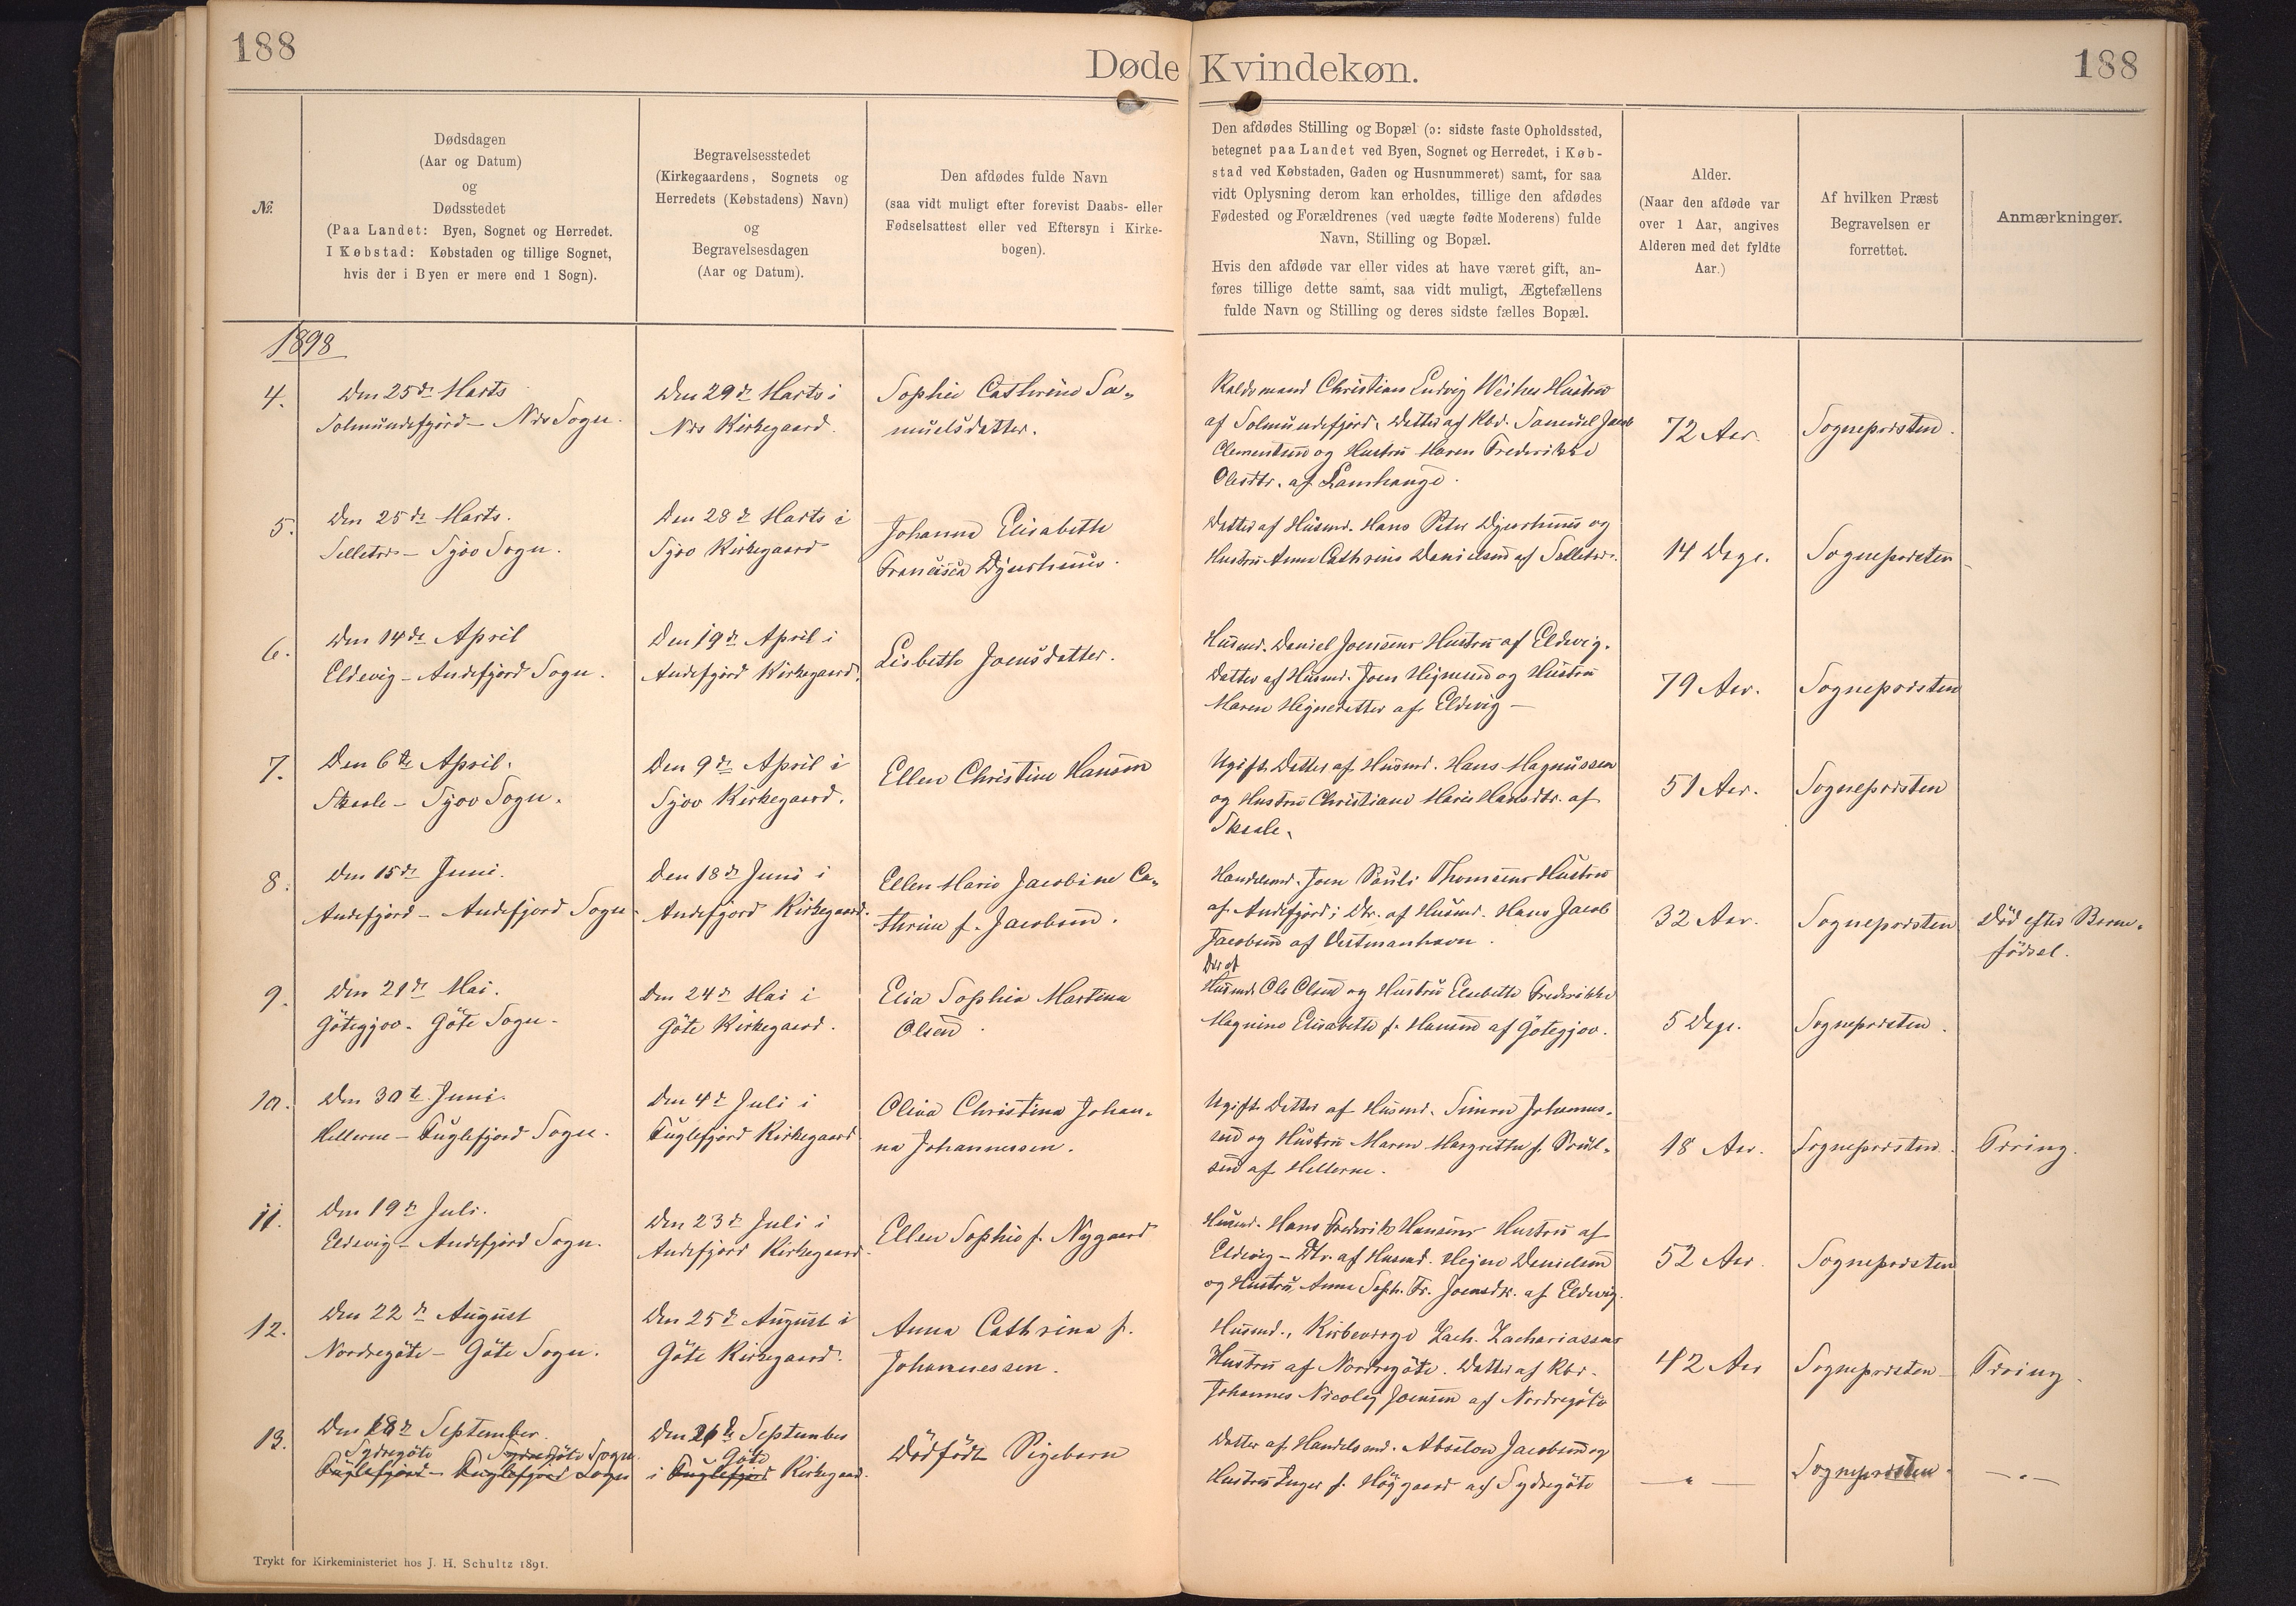 188
Døde Kvindekøn.
188
№.
Dødsdagen
(Aar og Datum)
og
Dødsstedet
(Paa Landet: Byen, Sognet og Herredet.
I Købstad: Købstaden og tillige Sognet,
hvis der i Byen er mere end 1 Sogn).
Begravelsesstedet
(Kirkegaardens, Sognets og
Herredets (Købstadens) Navn)
og
Begravelsesdagen
(Aar og Datum).
Den afdødes fulde Navn
(saa vidt muligt efter forevist Daabs- eller
Fødselsattest eller ved Eftersyn i Kirke-
bogen).
Den afdødes Stilling og Bopæl (ɔ: sidste faste Opholdssted,
betegnet paa Landet ved Byen, Sognet og Herredet, i Køb-
stad ved Købstaden, Gaden og Husnummeret) samt, for saa
vidt Oplysning derom kan erholdes, tillige den afdødes
Fødested og Forældrenes (ved uægte fødte Moderens) fulde
Navn, Stilling og Bopæl.
Hvis den afdøde var eller vides at have været gift, an-
føres tillige dette samt, saa vidt muligt, Ægtefællens
fulde Navn og Stilling og deres sidste fælles Bopæl.
Alder.
(Naar den afdøde var
over 1 Aar, angives
Alderen med det fyldte
Aar.)
Af hvilken Præst
Begravelsen er
forrettet.
Anmærkninger.
1898
4.
Den 25de Marts
Solmundefjord – Næs Sogn.
Den 29de Marts i
Næs Kirkegaard.
Sophie Cathrine Sa-
muelsdatter.
Christian Ludvig Weihes Hustru
af Solmundefjord. Datter af Kbd. Samuel Jacob
Clementsen og Hustru Maren Frederikke
Olesdtr. af Lamhauge.
72 Aar.
Sognepræsten.
5.
Den 25de Marts.
Selletræ – Sjov Sogn.
Den 28de Marts i
Sjov Kirkegaard
Johanna Elisabeth
Francisca Djurhuus.
Datter af Husmd. Hans Peter Djurhuus og
Hustru Anna Cathrine Danielsen af Selletræ.
14 Dage.
Sognepræsten
6.
Den 14de April
Eldevig – Andefjord Sogn.
Den 19de April i
Andefjord Kirkegaard.
Lisbeth Joensdatter.
Husmd. Daniel Joensens Hustru af Eldevig.
Datter af Husmd. Joen Hejnesen og Hustru
Maren Hejnesdatter af Eldevig –
79 Aar.
Sognepræsten
7.
Den 6te April.
Skaale – Sjov Sogn.
Den 9de April i
Sjov Kirkegaard.
Ellen Christine Hansen
Ugift. Datter af Husmd. Hans Magnussen
og Hustru Christiane Marie Hansdtr. af
Skaale.
51 Aar.
Sognepræsten
8.
Den 15de Juni.
Andefjord – Andefjord Sogn
Den 18de Juni i
Andefjord Kirkegaard.
Ellen Marie Jacobine Ca-
thrine f. Jacobsen.
Handelsmd. Joen Pauli Thomsens Hustru
af Andefjord; Dtr. af Husmd. Hans Jacob
Jacobsen af Vestmanhavn.
32 Aar.
Sognepræsten
Död efter Barne-
födsel.
9.
Den 21de Mai.
Götegjov – Göte Sogn.
Den 24de Mai i
Göte Kirkegaard.
Elia Sophia Martina
Olsen.
Dtr af
Husmd. Ole Olsen og Hustru Elsebeth Frederikke
Magnine Elisabeth f. Hansen af Götegjov.
5 Dage.
Sognepræsten.
10.
Den 30te Juni.
Hellerne – Fuglefjord Sogn.
Den 4de Juli i
Fuglefjord Kirkegaard
Oliva Christina Johan-
na Johannessen.
Ugift. Datter af Husmd. Simon Johannes-
sen og Hustru Maren Margretha f. Poul-
sen af Hellerne.
18 Aar.
Sognepræsten.
Tæring.
11.
Den 19de Juli.
Eldevig – Andefjord Sogn.
Den 23de Juli i
Andefjord Kirkegaard.
Ellen Sophie f. Nygaard
Husmd. Hans Frederik Hansens Hustru af
Eldevig – Dtr. af Husmd. Hejne Danielsen
og Hustru Anna Soph. Fr. Joensdtr. af Eldevig.
52 Aar
Sognepræsten
12.
Den 22de August
Nordregöte – Göte Sogn.
Den 25de August i
Göte Kirkegaard.
Anna Cathrina f.
Johannessen.
Husmd., Kirkeværge Zach. Zachariasens
Hustru af Nordregöte. Datter af Kbd.
Johannes Nicolaj Joensen af Nordregöte
42 Aar
Sognepræsten –
Tæring.
13.
Den 18de September.
Sydregöte Göte Sogn.
Fuglefjord – Fuglefjord Sogn
Den 21de September
Göte
i Fuglefjord Kirkegaard.
Dödfödt Pigebarn
Datter af Handelsmd. Absalon Jacobsen og
Hustru Inger f. Höygaard af Sydregöte
— " —
Sognepræsten.
— " —
Trykt for Kirkeministeriet hos J. H. Schultz 1891.